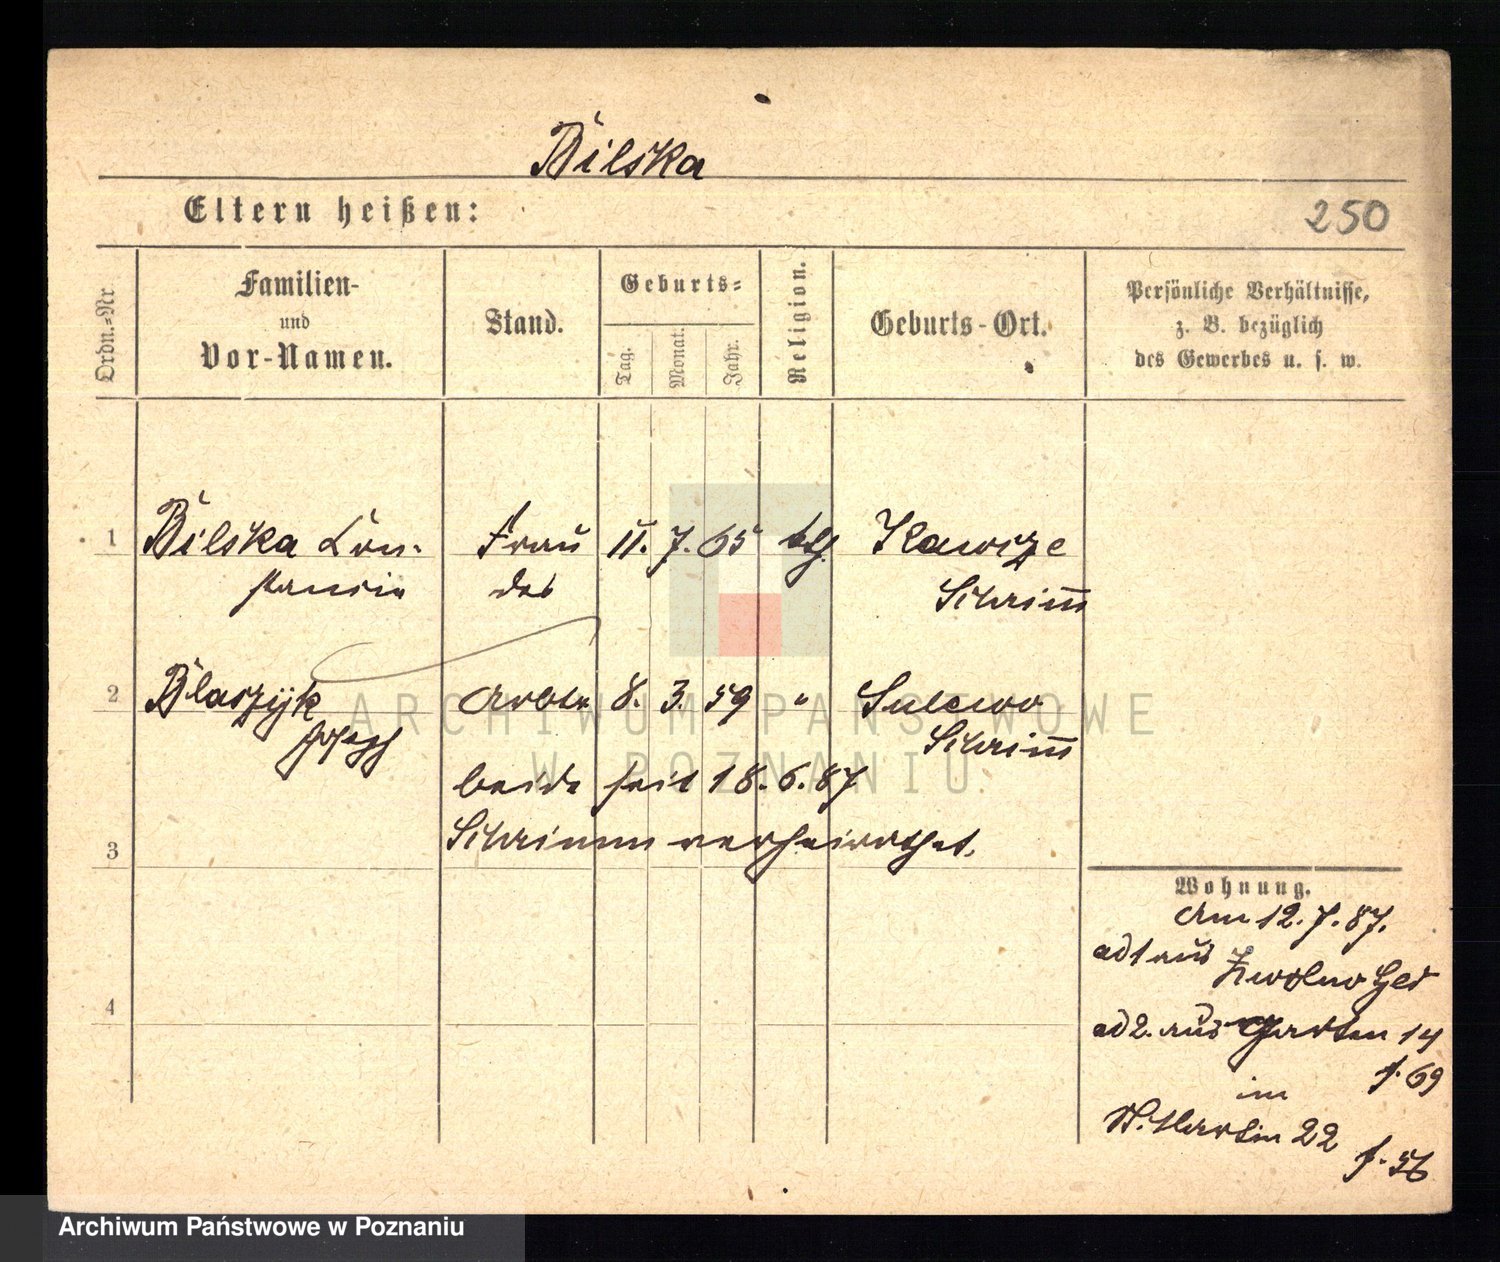 Bilska
Eltern heißen:
250
Ordn.-Nr.
Familien-
und
Vor-Namen.
Stand.
Geburts-
Tag.
Monat.
Jahr.
Religion.
Geburts-Ort.
Persönliche Verhältnisse,
z. B. bezüglich
des Gewerbes u. s. w.
1 Bilska Con- Frau 11. 7. 65 kth.
stancia des Schrimm
2 Blaszyk Arbtr. 8. 3. 59 " Sulewo
Joseph Schrimm
beide seit 18. 6. 87
3 Schrimm verheirathet.
Wohnung.
Am 12. 7. 87.
ad 1 aus
4
ad 2. aus Garten 14
f. 69
im
St. Martin 22
f. 56
ARCHIWUM PAŃSTWOWE
W POZNANIU
Archiwum Państwowe w Poznaniu